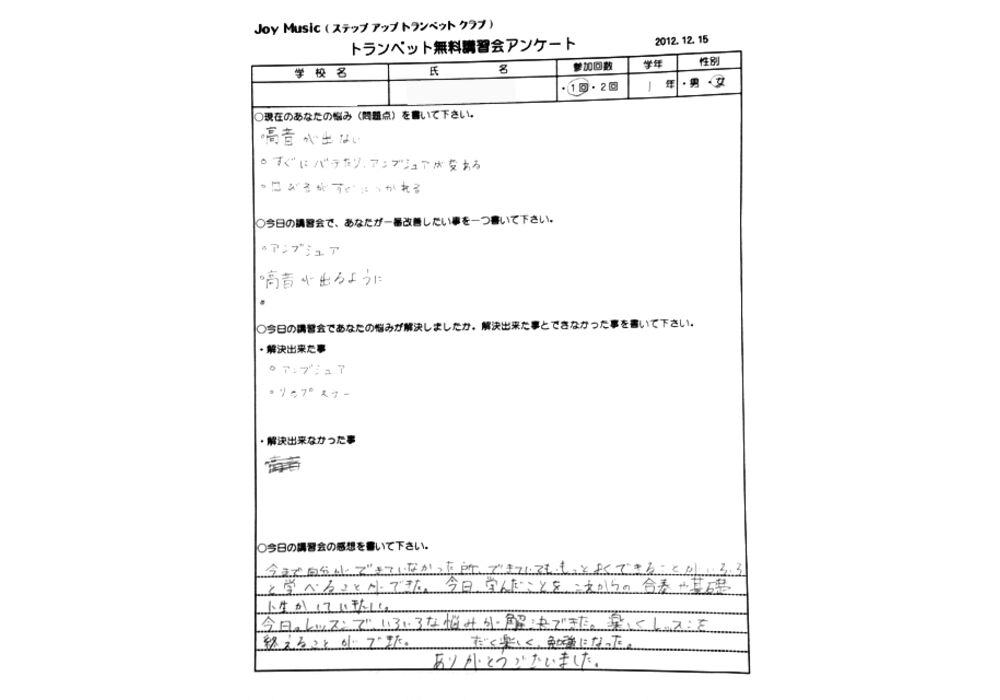 Joy Music ( ステップ アップ トランペット クラブ )
トランペット無料講習会アンケート 2012.12.15
学校名 氏名 参加回数 学年 性別
・1回・2回 1年 ・男・女
○現在のあなたの悩み（問題点）を書いて下さい。
◦高音が出ない
◦すぐにバテたり、アンブシュアが変わる
◦くちびるがすぐにつかれる
○今日の講習会で、あなたが一番改善したい事を一つ書いて下さい。
◦アンブシュア
◦高音が出るように
○今日の講習会であなたの悩みが解決しましたか。解決出来た事とできなかった事を書いて下さい。
・解決出来た事
◦アンブシュア
◦リップスラー
・解決出来なかった事
○今日の講習会の感想を書いて下さい。
今まで自分ができていなかった所、できていてももっとよくできることがいろいろ
と学べることができた。今日学んだことを、これからの合奏や基礎
に生かしていきたい。
今日のレッスンで、いろいろな悩みが解決できた。楽しくレッスンを
終えることができた。 楽しく、勉強になった。
ありがとうございました。